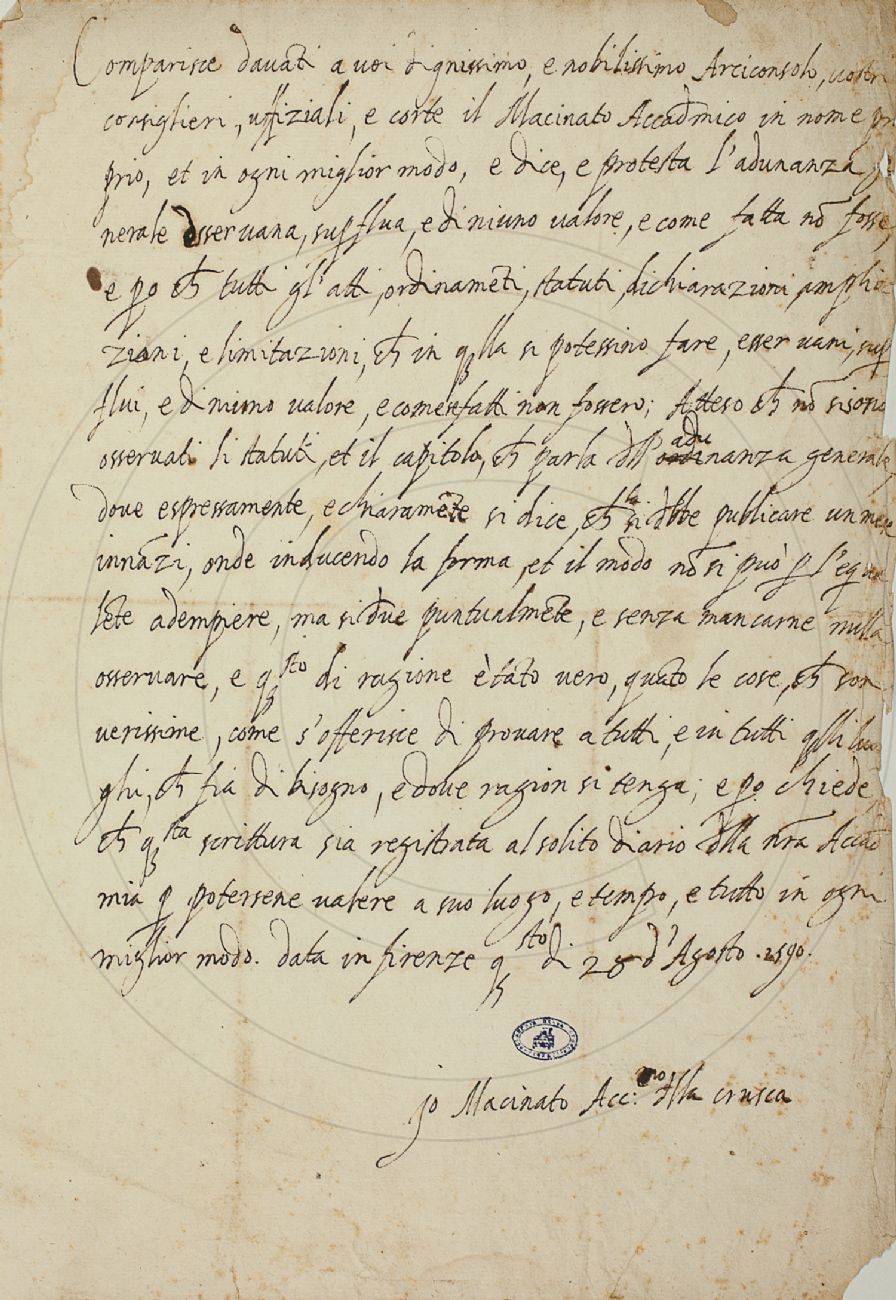 Comparisce davāti a voi dignissimo, e nobilissimo Arciconsolo, vostri
consiglieri, uffiziali, e corte il Macinato Accad̄mico in nome pro
prio, et in ogni miglior modo, e dice, e protesta l'adunanza ge
nerale esser vana, suꝑflua, e di niuno valore, e come fatta nō fosse,
e ꝑo ch̄ tutti gl'atti, ordinamēti, statuti, dichiarazioni, amplia
zioni, e limitazioni, ch̄ in q̄lla si potessino fare, esser vani, suꝑ
flui, e di niuno valore, e come se fatti non fossero; Atteso ch̄ nō si sono
osservati li statuti, et il capitolo, ch̄ parla d̄ll'adunanza generale,
dove espressamente, e chiaramēte si dice, ch̄ la si d̄bbe publicare un mese
innāzi, onde inducendo la forma, et il modo nō si può ꝑ l'equa
lēte adempiere, ma si d̄ve puntualmēte, e senza mancarne nulla
osservare, e qsto di ragione è tāto vero, quāto le cose, ch̄ son
verissime, come s'offerisce di provare a tutti, e in tutti q̄lli luo
ghi, ch̄ fia di bisogno, e dove ragion si tenga; e ꝑo chiede,
ch̄ qsta scrittura sia registrata al solito diario d̄lla nr̄a Accad̄
mia ꝑ potersene valere a suo luogo, e tempo, e tutto in ogni
miglior modo. data in firenze qsto di 28 d'Agosto. 1590.
Jo Macinato Acc:mo d̄lla crusca